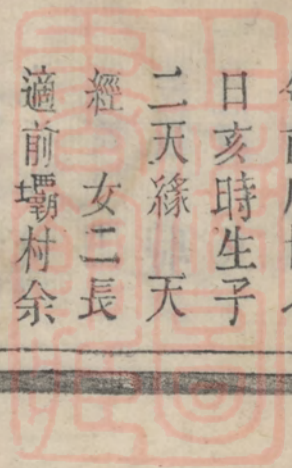 日亥時生子
二天緣 天
經 女二長
適前壩村余